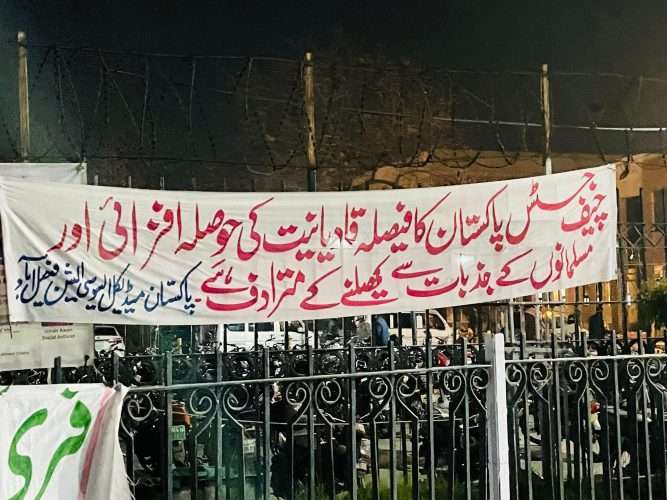 چیف جسٹس پاکستان کا فیصلہ قادیانیت کی حوصلہ افزائی اور
مسلمانوں کے جذبات سے کھیلنے کے مترادف ہے۔ پاکستان میڈیکل ایسوسی ایشن فیصل آباد
فری